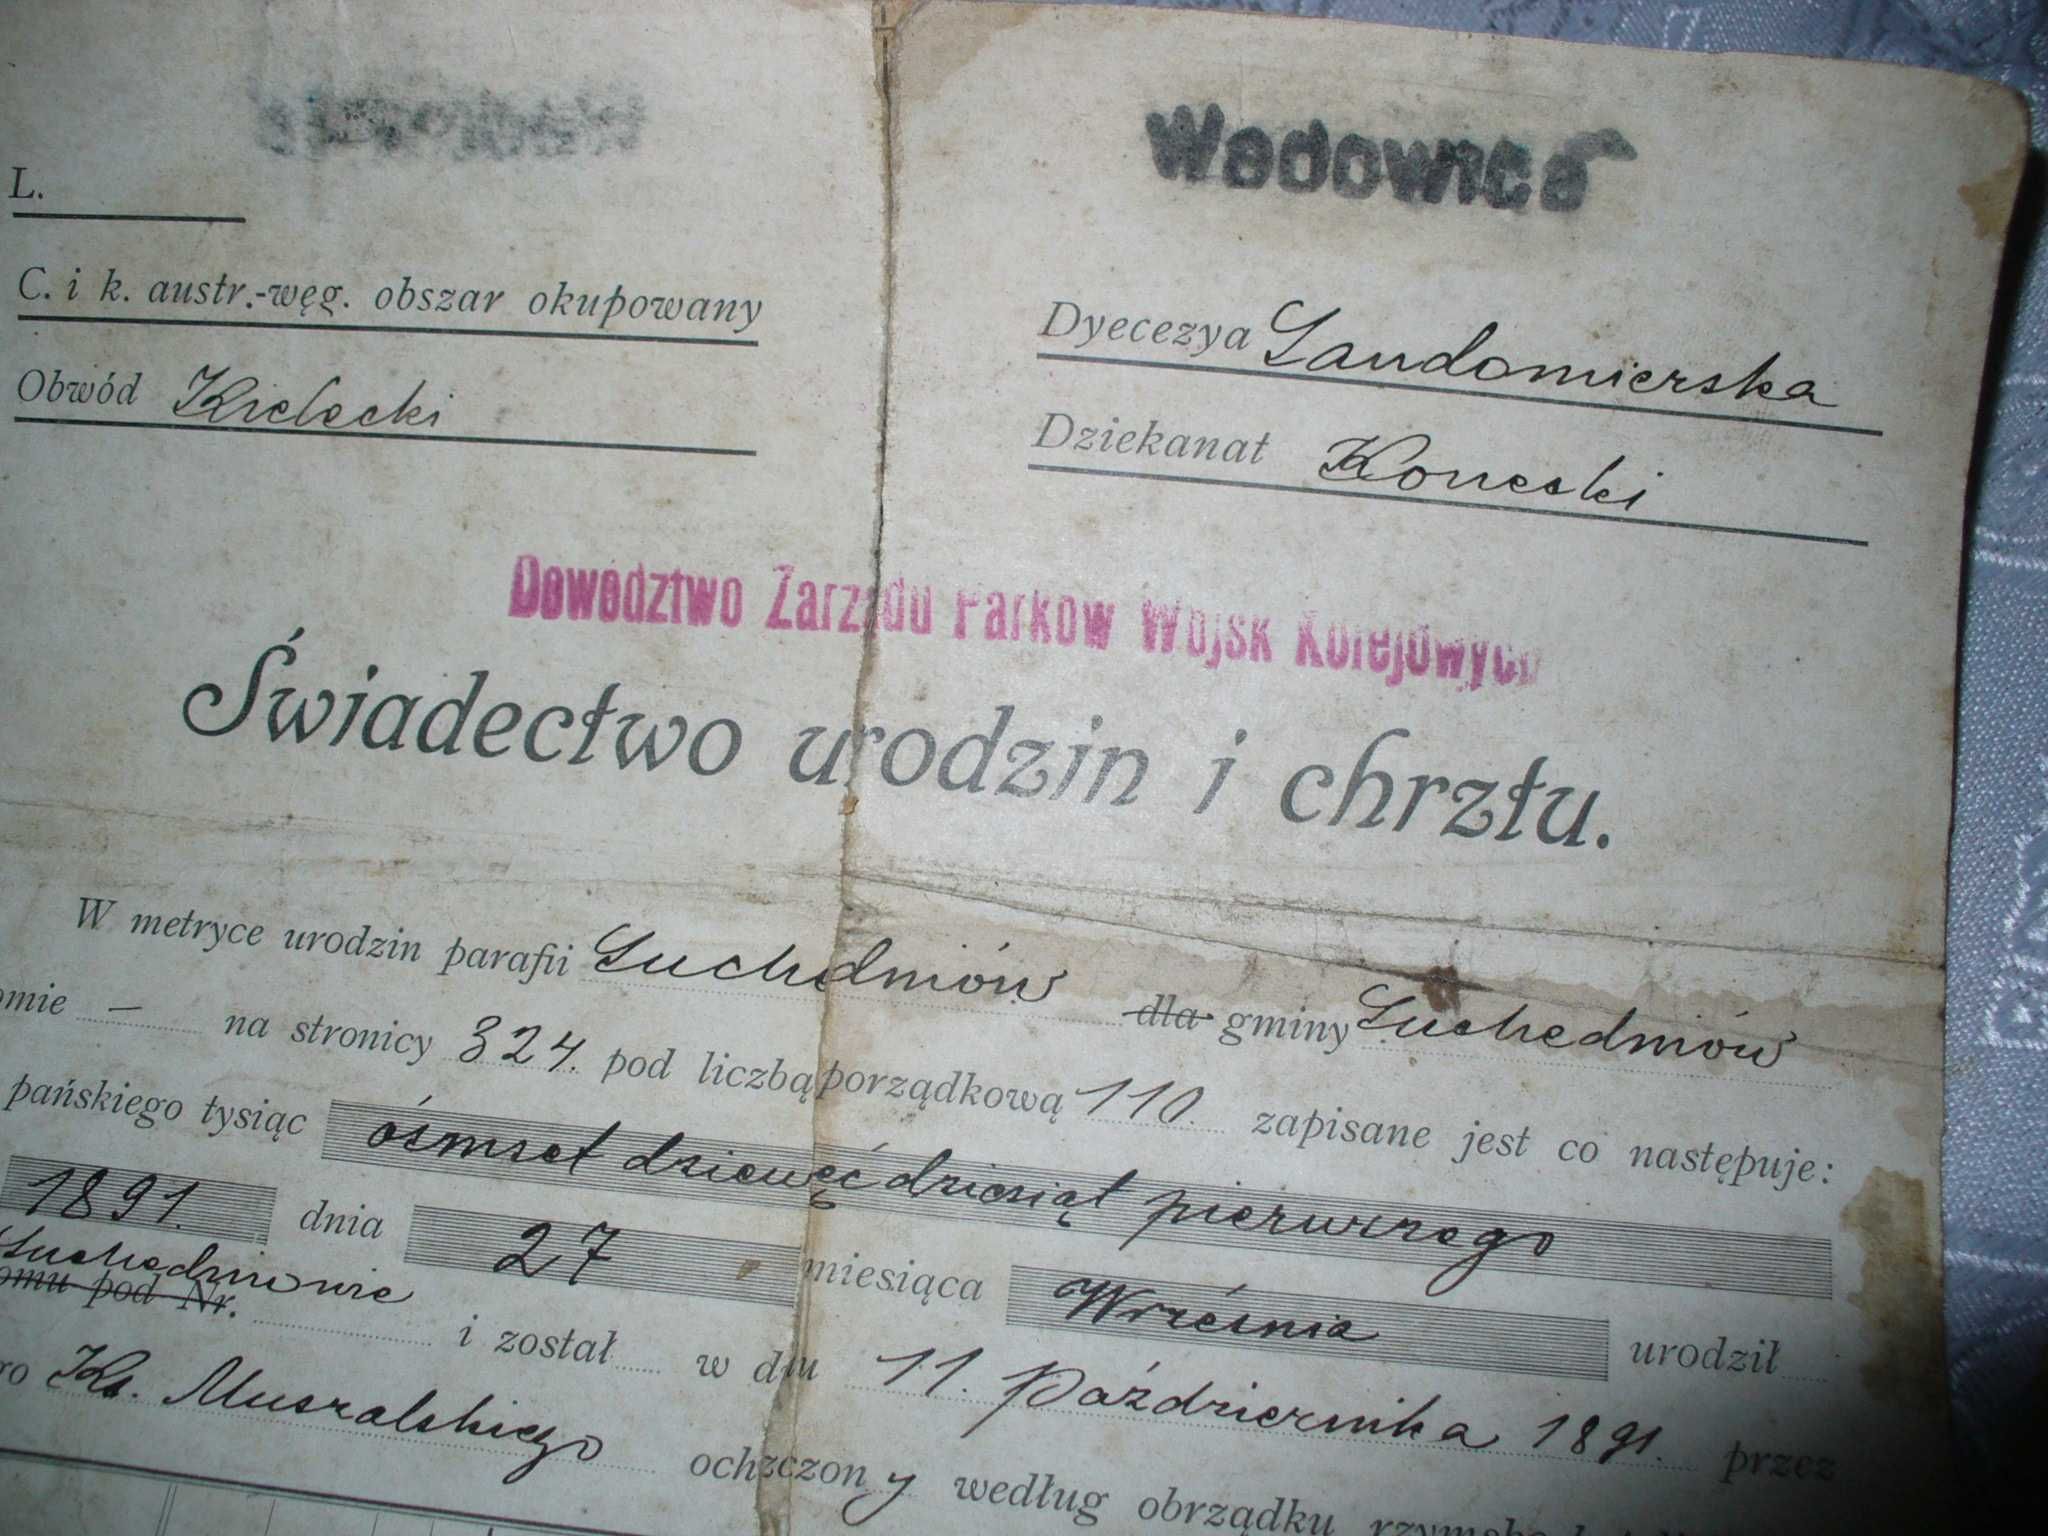 Wadowice
L.
C. i k. austr.-węg. obszar okupowany
Dyecezya Sandomierska
Obwód Kielecki
Dziekanat Konecki
Dowództwo Zarządu Parków Wojsk Kolejowych
Świadectwo urodzin i chrztu.
W metryce urodzin parafii Suchedniów dla gminy Suchedniów
omie — na stronicy 324. pod liczbą porządkową 110. zapisane jest co następuje:
pańskiego tysiąc ósmset dziewęćdziesiąt pierwszego
1891. dnia 27 miesiąca Września urodził
Suchedniowie
omu pod Nr. i został w dniu 11. Października 1891. przez
ro Ks. Muszalskiego ochrzczony według obrządku